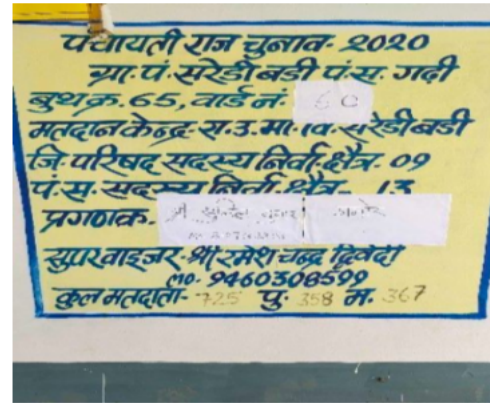 पंचायती राज चुनाव- 2020
ग्रा. पं. सरेडी बडी पं. स. गढ़ी
बुथ क्र. 65, वार्ड नं.
मतदान केन्द्र- रा. उ. मा. वि. सरेडी बडी
जि. परिषद सदस्य निर्वा. क्षैत्र- 09
पं. स. सदस्य निर्वा. क्षैत्र- 13
प्रगणक- श्री
सुपरवाइजर- श्री रमेश चन्द्र द्विवेदी
mo. 9460308599
कुल मतदाता- 725 पु. 358 म. 367